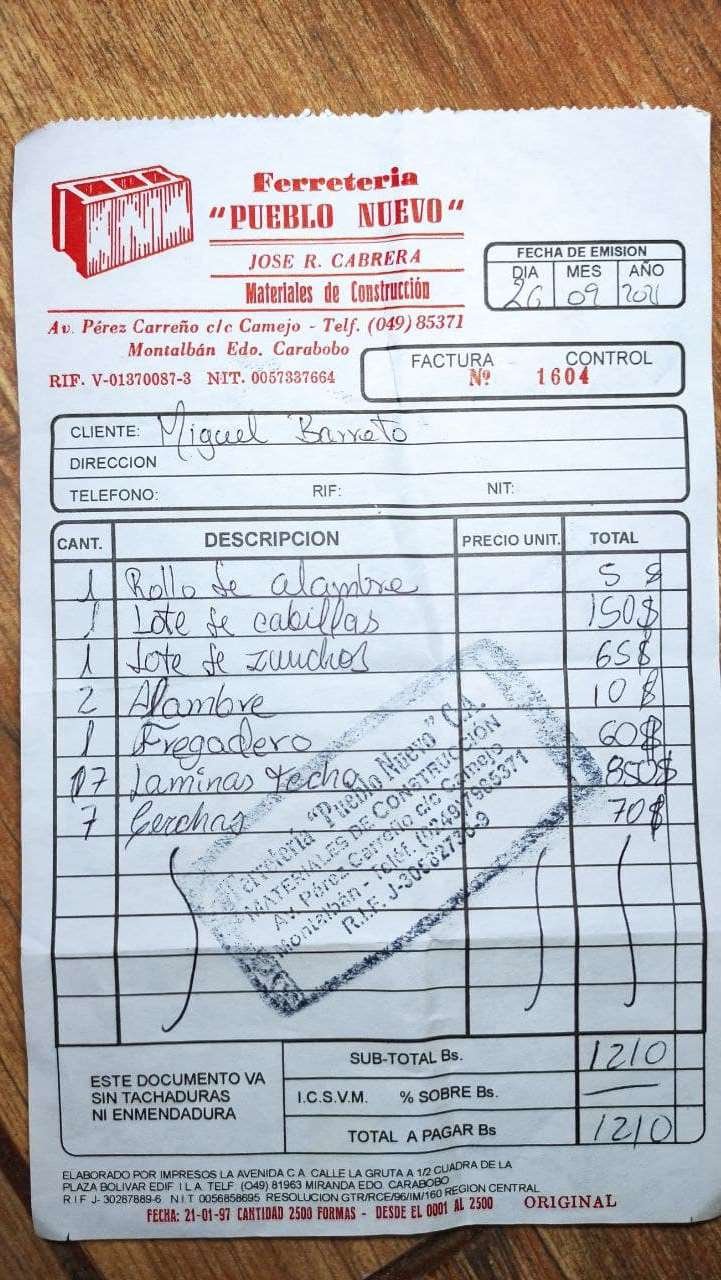 Ferreteria
"PUEBLO NUEVO"
JOSE R. CABRERA
Materiales de Construcción
Av. Pérez Carreño c/c Camejo - Telf. (049) 85371
Montalbán Edo. Carabobo
RIF. V-01370087-3 NIT. 0057337664
FECHA DE EMISION
DIA MES AÑO
26 09 2021
FACTURA CONTROL
Nº 1604
CLIENTE: Miguel Barreto
DIRECCION
TELEFONO: RIF: NIT:
CANT. DESCRIPCION PRECIO UNIT. TOTAL
1 Rollo de alambre 5 $
1 Lote de cabillas 150$
1 Lote de zunchos 65$
2 Alambre 10 $
1 Fregadero 60$
17 Laminas techo 850$
7 Cerchas 70$
"Pueblo Nuevo" C.A.
MATERIALES DE CONSTRUCCIÓN
Av. Pérez Carreño c/c Camejo
Montalbán - Teléf. (0249)7985371
R.I.F.
SUB-TOTAL Bs. 1210
I.C.S.V.M. % SOBRE Bs.
TOTAL A PAGAR Bs 1210
ESTE DOCUMENTO VA
SIN TACHADURAS
NI ENMENDADURA
ELABORADO POR IMPRESOS LA AVENIDA C.A. CALLE LA GRUTA A 1/2 CUADRA DE LA
PLAZA BOLIVAR EDIF I L A. TELF (049) 81963 MIRANDA EDO. CARABOBO
R I F J- 30287889-6 N I T 0056858695 RESOLUCION GTR/RCE/96/IM/160 REGION CENTRAL
FECHA: 21-01-97 CANTIDAD 2500 FORMAS - DESDE EL 0001 AL 2500 ORIGINAL